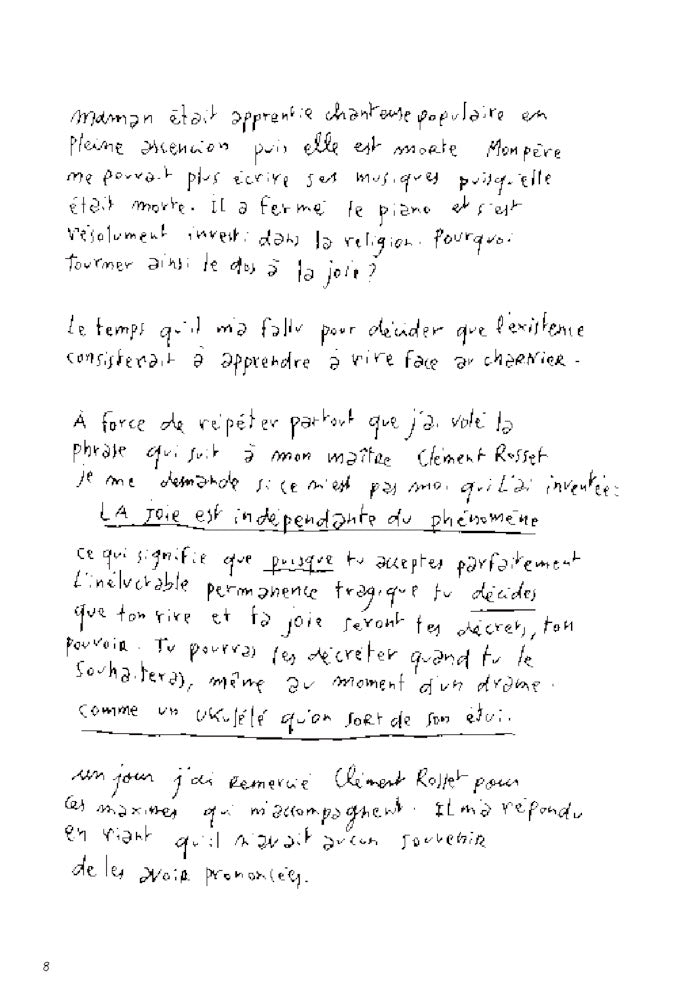 Maman était apprentie chanteuse populaire en
pleine ascencion puis elle est morte Mon père
ne pouvait plus écrire ses musiques puisqu'elle
était morte. Il a fermé le piano et s'est
résolument investi dans la religion. Pourquoi
tourner ainsi le dos à la joie ?
Le temps qu'il m'a fallu pour décider que l'existence
consisterait à apprendre à rire face au chARNIER.
À force de répéter partout que j'ai volé la
phrase qui suit à mon maître Clément Rosset
je me demande si ce n'est pas moi qui l'ai inventée :
LA JOIE EST indépendante du phénomène
ce qui signifie que puisque tu acceptes parfaitement
L'inéluctable permanence tragique tu décides
que ton rire et ta joie seront tes décrets, ton
pouvoir. Tu pourras les décréter quand tu le
souhaiteras, même au moment d'un drame.
comme un ukulélé qu'on sort de son étui.
un jour j'ai remercié Clément Rosset pour
ces maximes qui m'accompagnent. Il m'a répondu
en riant qu'il n'avait aucun souvenir
de les avoir prononcées.
8